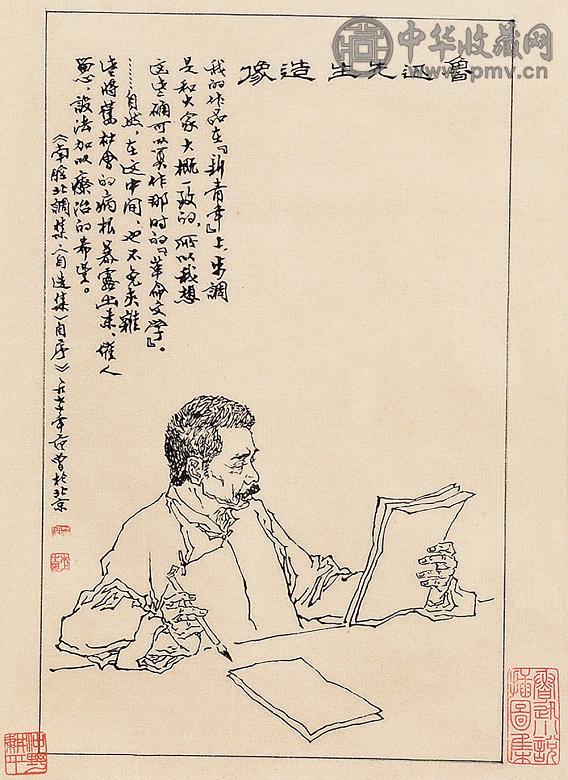 中华收藏网
www.pmv.cn
魯迅先生造像
我的作品在『新青年』上，步調
是和大家大概一致的，所以我想
这些确可以算作那时的『革命文学』。
……自然，在这中间，也不免夹雜
些将舊社會的病根暴露出来，催人
留心，設法加以療治的希望。
《南腔北調集·〈自选集〉自序》 年范曾於北京
魯迅小說插圖集